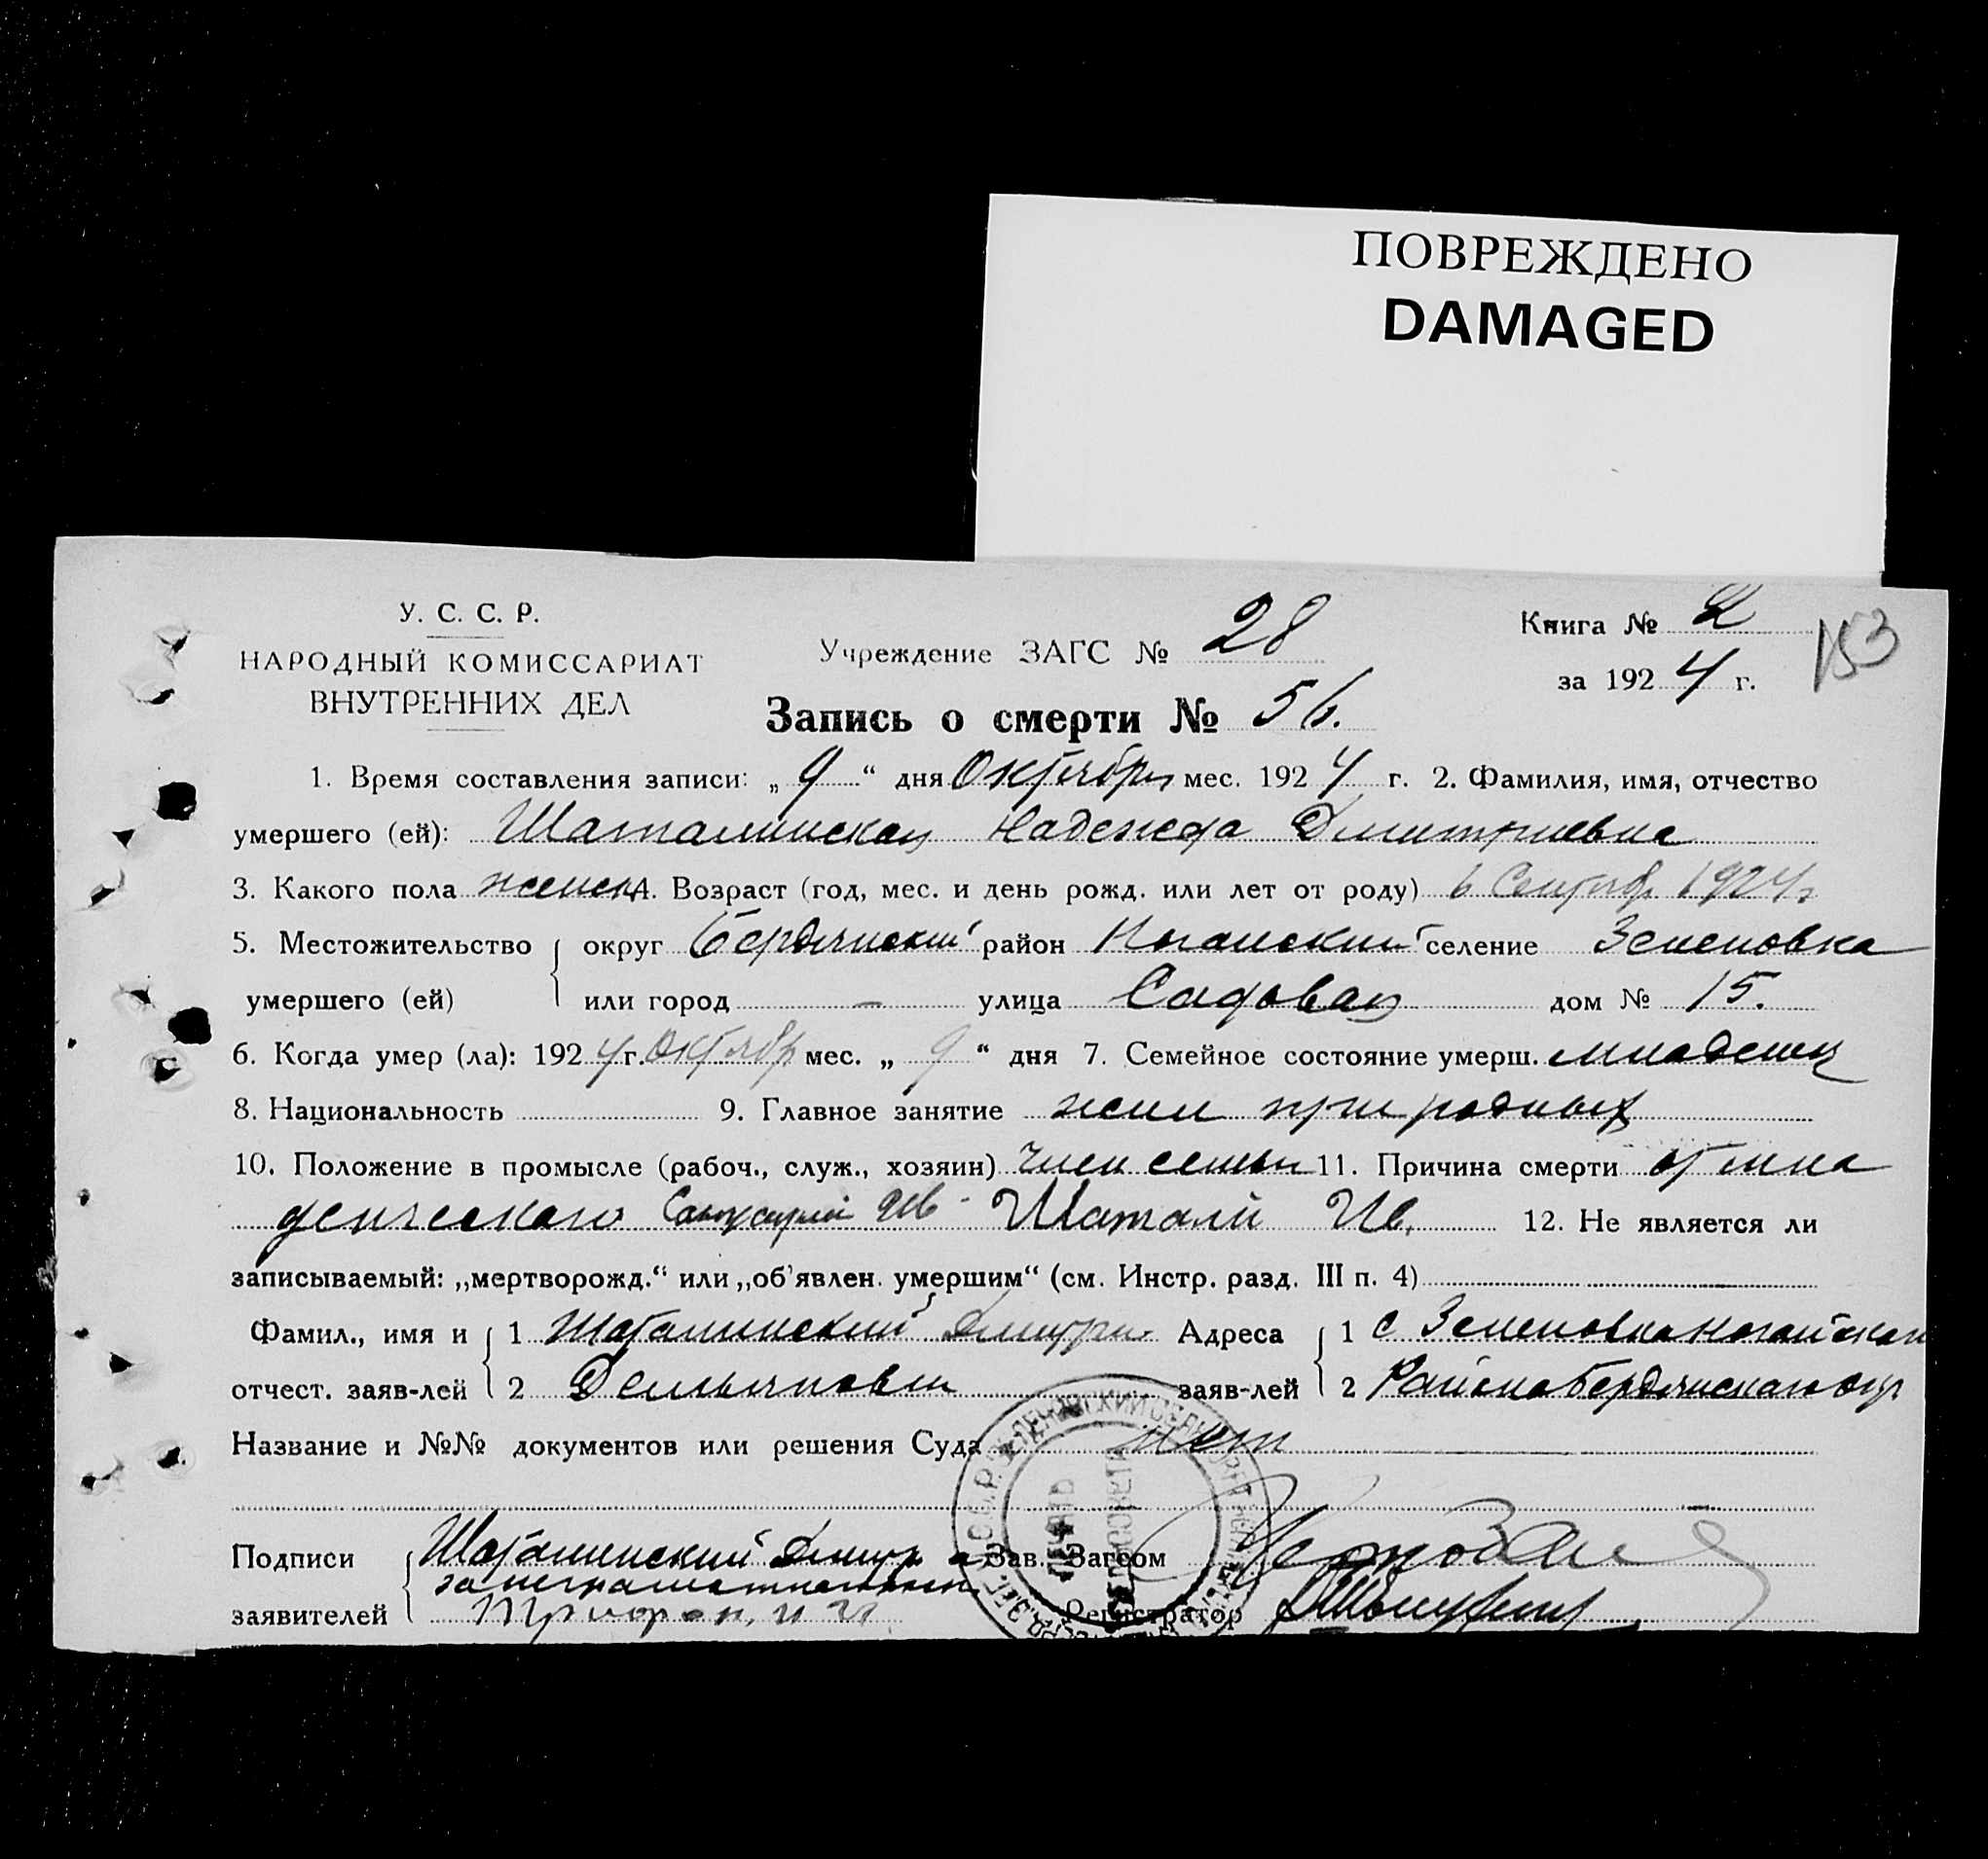 ПОВРЕЖДЕНО
DAMAGED
У. С. С. Р.
НАРОДНЫЙ КОМИССАРИАТ
ВНУТРЕННИХ ДЕЛ
Учреждение ЗАГС № 28
Книга № 2
за 1924 г.
153
Запись о смерти № 56.
1. Время составления записи: „ 9 “ дня Октября мес. 1924 г. 2. Фамилия, имя, отчество
умершего (ей): Шаталинская Надежда Дмитриевна
3. Какого пола женск 4. Возраст (год, мес. и день рожд. или лет от роду) 6 Сентябр 1924 г
5. Местожительство округ Бердянский район Ногайский селение Зеленовка
умершего (ей) или город – улица Садовая дом № 15.
6. Когда умер (ла): 1924 г. Октябр мес. „ 9 “ дня 7. Семейное состояние умерш. младенец
8. Национальность 9. Главное занятие при родных
10. Положение в промысле (рабоч., служ., хозяин) член семьи 11. Причина смерти от мла
денческого
12. Не является ли
записываемый: „мертворожд.“ или „об'явлен. умершим“ (см. Инстр. разд. III п. 4)
Фамил., имя и 1 Шаталинский Дмитри Адреса 1 с Зеленовка Ногайскаго
отчест. заяв-лей 2 Демьянович заяв-лей 2 Района Бердянскаго окр
Название и №№ документов или решения Суда нет
Подписи Шаталинский Дмитр а Зав. Загсом
за неграмотного
заявителей Регистратор